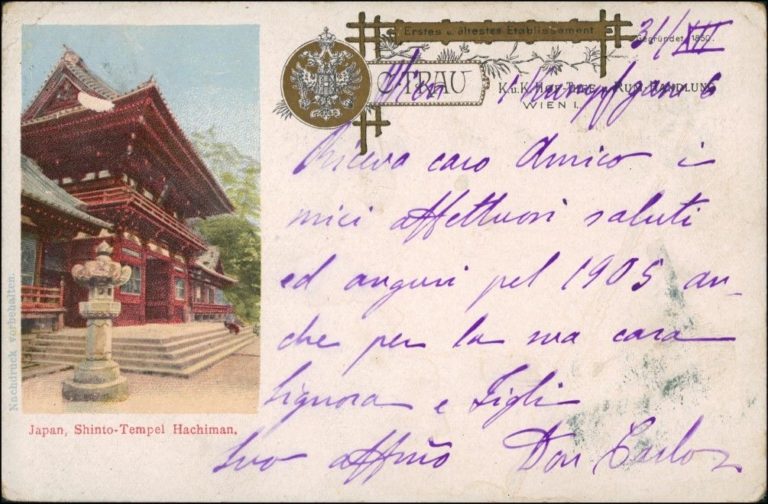 Erstes u. ältestes Etablissement
gegründet 1850.
31/XII
C. TRAU
K.u.K. Hof-Thee u. Rum Handlung
WIEN I.
Wien 1 6
Riceva caro Amico i
miei affettuosi saluti
ed auguri pel 1905 an-
che per la sua cara
Signora e Figli
Suo affmo Don Carlo
Nachdruck vorbehalten.
Japan, Shinto-Tempel Hachiman.